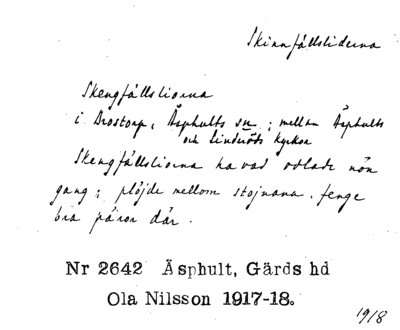 Skinnfällsliderna
Skengfällsliorna
i Brostorp, Äsphults sn; mellan Äsphults
och Linderöds kyrkor
Skengfällsliorna ha vad odlade nön
gang; plöjde mellom stojnana. fenge
bra päron där.
Nr 2642 Äsphult, Gärds hd
Ola Nilsson 1917-18.
1918